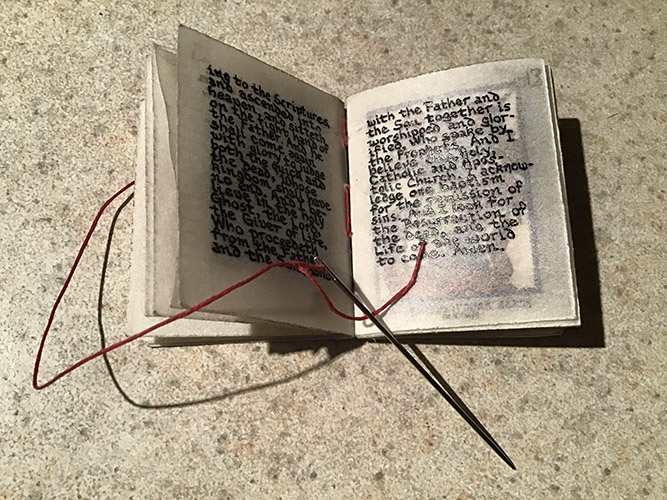 ing to the Scriptures,
and ascended
heaven and sitteth
on the right
the Father. And he
shall come again
with glory to judge
both the quick and
the dead
shall have
no end.
lieve in the Holy
Ghost, the Lord
the Giver of Life,
Who proceedeth
from the
and the
13
with the Father and
the Son together is
worshipped and glor-
ified, Who spake by
the Prophets. And I
believe Holy
Catholic and Apos-
tolic Church. I acknow-
ledge one baptism
for the remission of
sins. And I look for
the Resurrection of
the Dead, and the
Life of the world
to come. Amen.